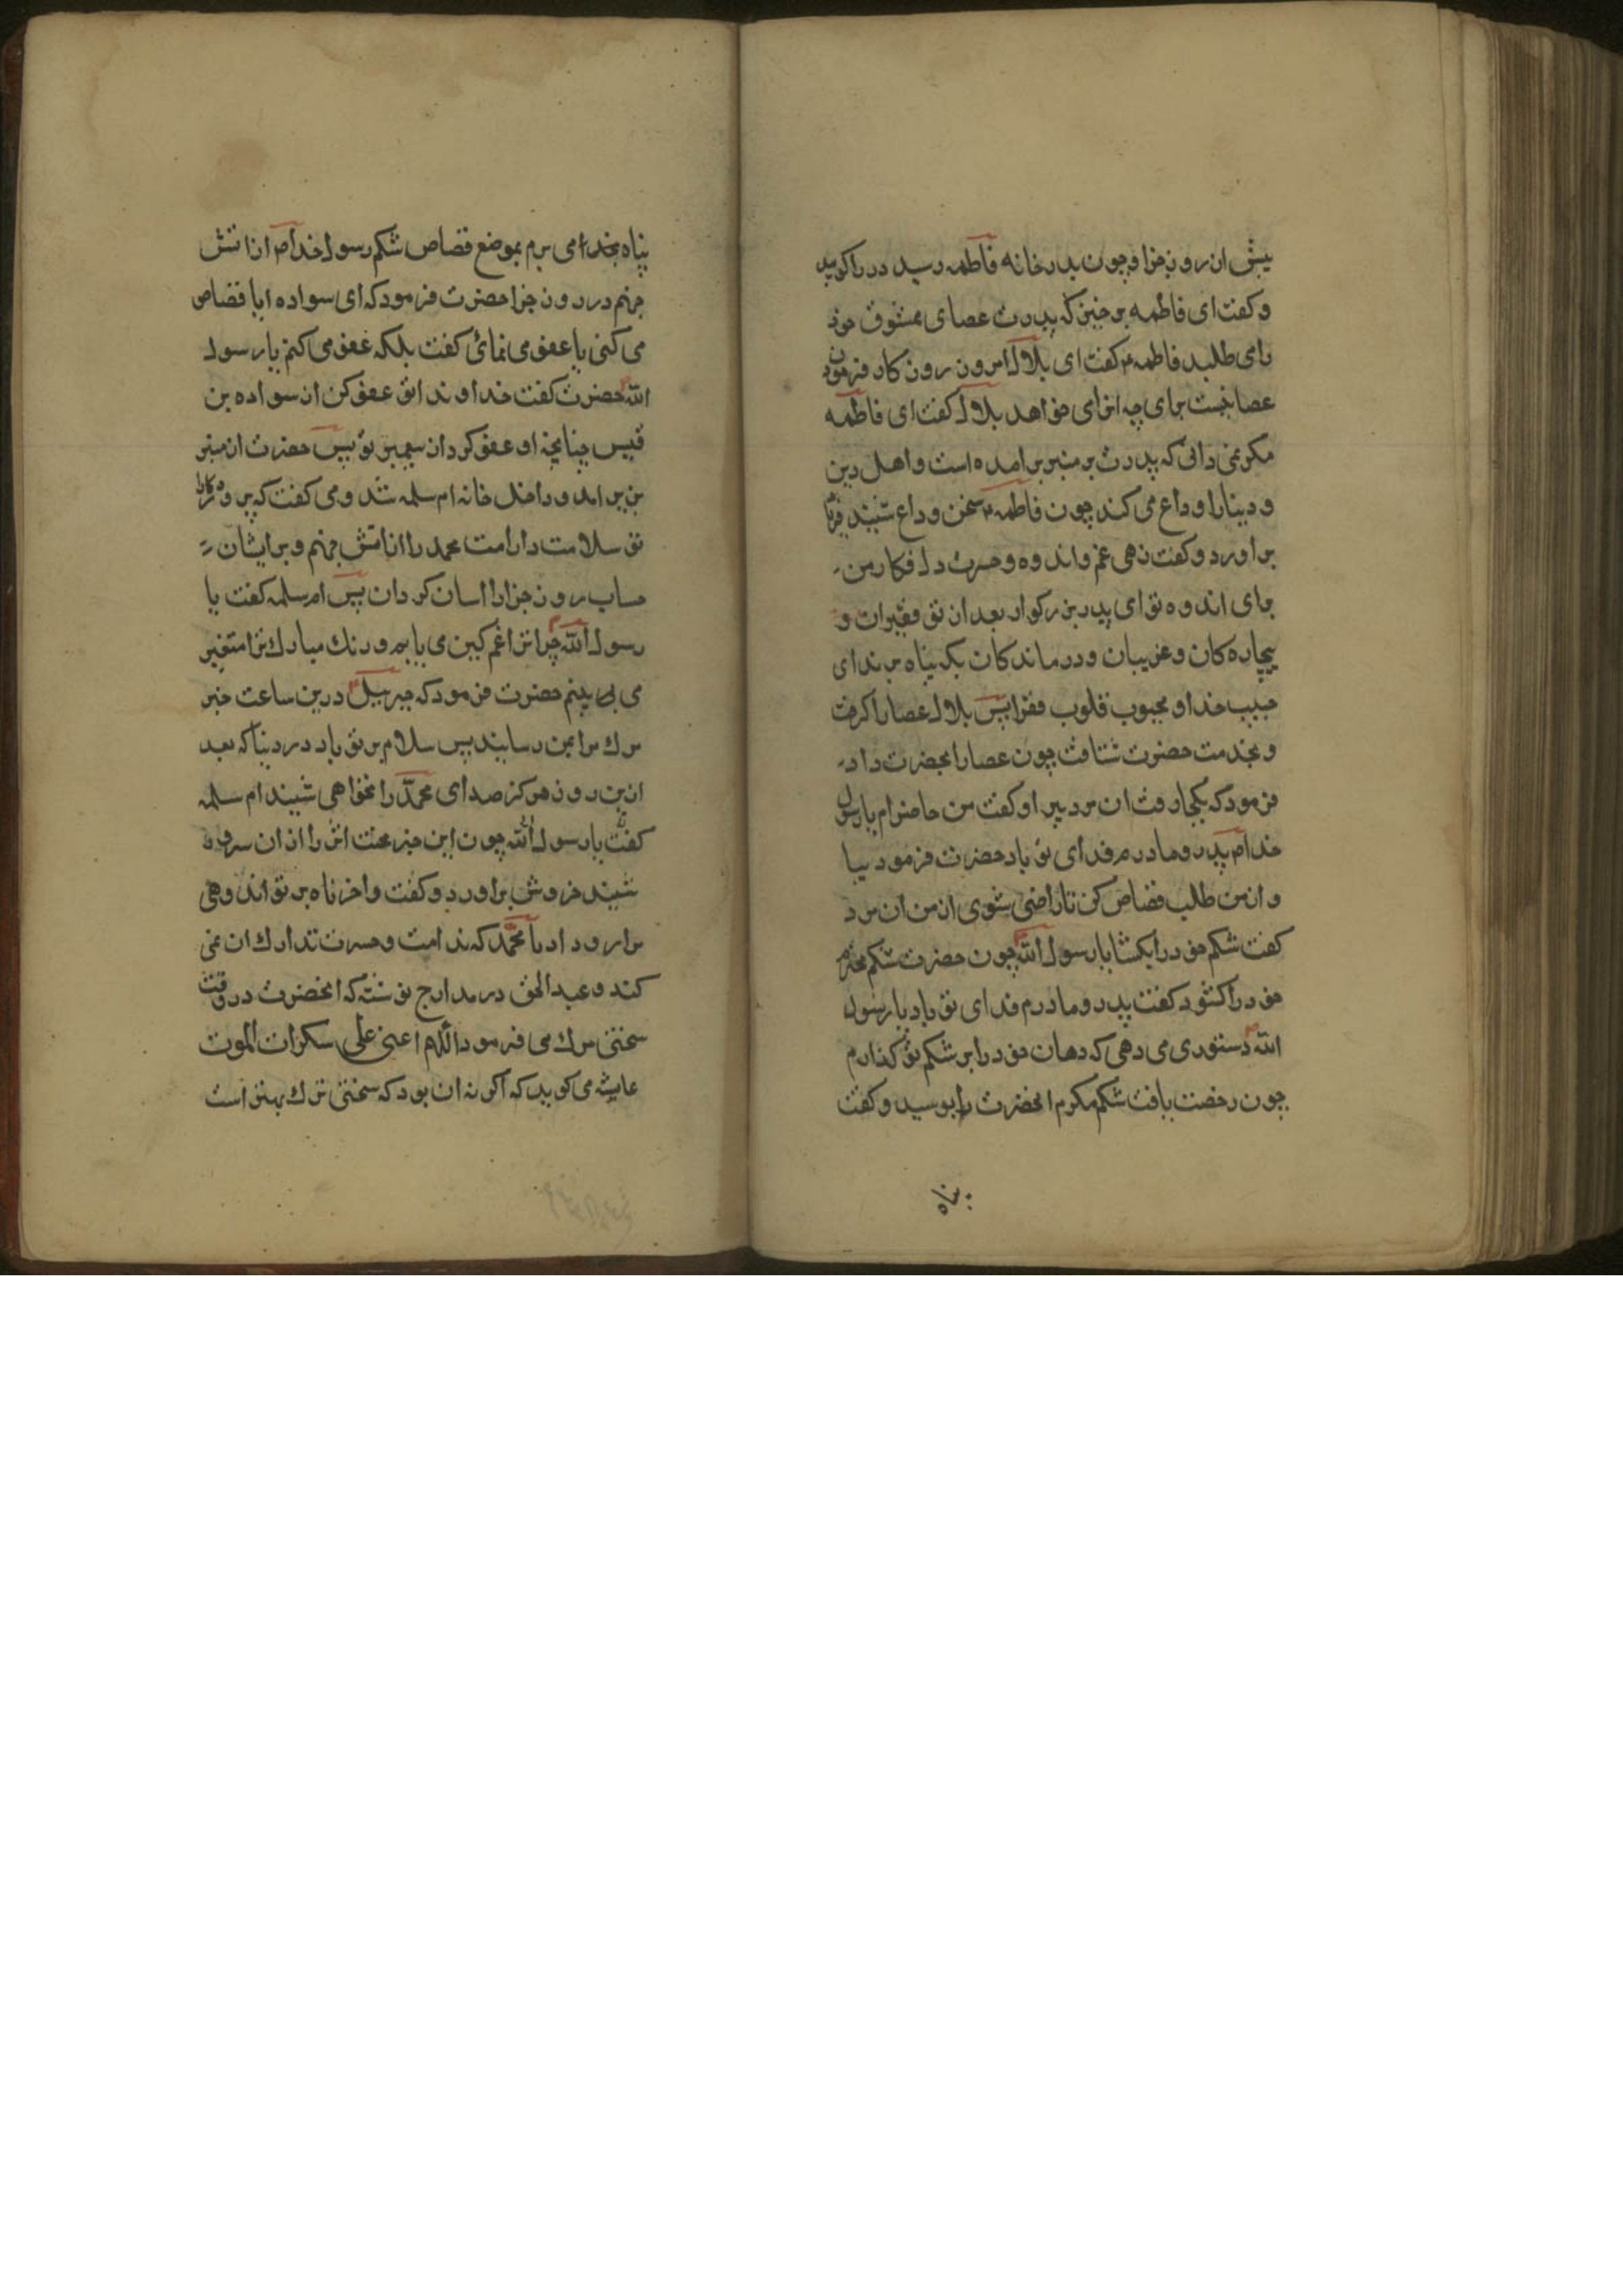 پیش از روز جزا و چون بدر خانه فاطمه رسید در را کوبید
و کفت ای فاطمه برخیز که پدرت عصای ممشوق خود
را می طلبد فاطمه کفت ای بلال امروز روز کار فرمودن
عصا نیست برای چه انرا می خواهد بلال کفت ای فاطمه
مکر نمی دانی که پدرت بر منبر بر امده است و اهل دین
و دنیا را وداع می کند چون فاطمه سخن وداع شنید فریاد
بر اورد و کفت زهی غم و اندوه و حسرت دل فکار من
برای اندوه تو ای پدر بزرکوار بعد از تو فقیران و
بیچاره کان و غریبان و درماندکان بکه پناه برند ای
حبیب خدا و محبوب قلوب فقرا پس بلال عصا را کرفت
و بخدمت حضرت شتافت چون عصا را بحضرت داد
فرمود که بکجا رفت ان مرد پیر او کفت من حاضرام یا رسول
خدا پدر و مادرم فدای تو باد حضرت فرمود بیا
و از من طلب قصاص کن تا راضی شوی از من ان مرد
کفت شکم خود را بکشا یا رسول الله چون حضرت شکم محترم
خود را کشود کفت پدر و مادرم فدای تو باد یا رسول
الله دستوری می دهی که دهان خود را بر شکم تو کذارم
چون رخصت یافت شکم مکرم انحضرت را بوسید و کفت
پناه
پناه بخدا می برم بموضع قصاص شکم رسول خدا از اتش
جهنم در روز جزا حضرت فرمود که ای سواده ایا قصاص
می کنی یا عفو می نمائی کفت بلکه عفو می کنم یا رسول
الله حضرت کفت خداوندا تو عفو کن از سواده بن
قیس چنانچه او عفو کرد از پیغمبر تو پس حضرت از منبر
بزیر امد و داخل خانه ام سلمه شد و می کفت که پروردکارا
تو سلامت دار امت محمد را از اتش جهنم و بر ایشان
حساب روز جزا را اسان کردان پس ام سلمه کفت یا
رسول الله چرا ترا غمکین می یابم و رنک مبارک ترا متغیر
می بینم حضرت فرمود که جبرییل درین ساعت خبر
مرک مرا بمن رسانید پس سلام بر تو باد در دنیا که بعد
ازین روز هرکز صدای محمد را نخواهی شنید ام سلمه
کفت یا رسول الله چون این خبر محنت اثر را از ان سرور
شنید خروش براورد و کفت واحزناه بر تو اندوهی
مرا رو داد یا محمد که ندامت و حسرت تدارک ان نمی
کند و عبد الحق در مدارج نوشته که انحضرت در وقت
سختی مرک می فرمود اللهم اعنی علی سکرات الموت
عایشه می کوید که اکر نه ان بود که سختی مرک بهتر است